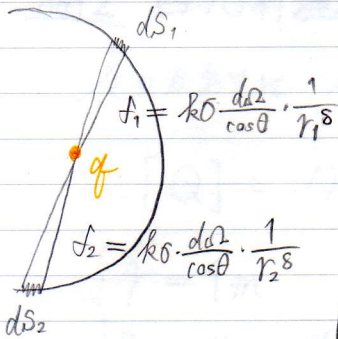 dS₁
f₁ = kσ dΩ/cosθ · 1/r₁^δ
q
f₂ = kσ · dΩ/cosθ · 1/r₂^δ
dS₂